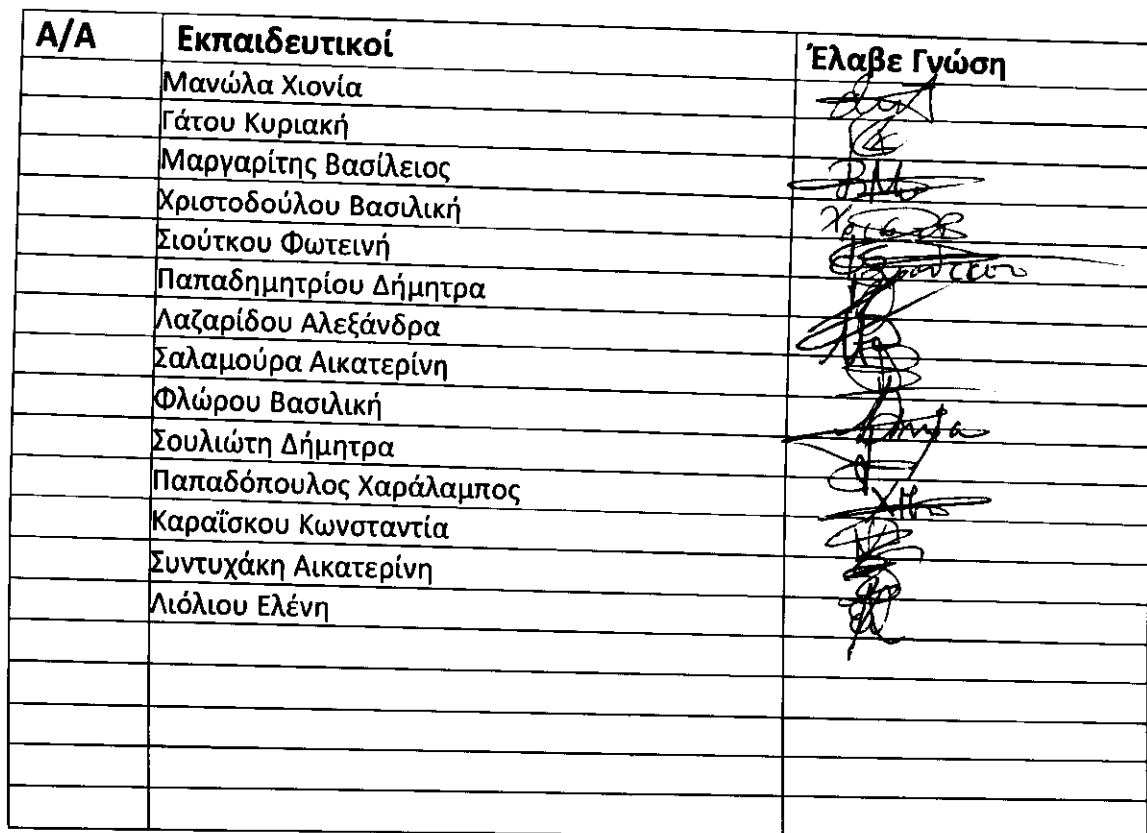 Α/Α Εκπαιδευτικοί Έλαβε Γνώση
Μανώλα Χιονία
Γάτου Κυριακή
Μαργαρίτης Βασίλειος
Χριστοδούλου Βασιλική
Σιούτκου Φωτεινή
Παπαδημητρίου Δήμητρα
Λαζαρίδου Αλεξάνδρα
Σαλαμούρα Αικατερίνη
Φλώρου Βασιλική
Σουλιώτη Δήμητρα
Παπαδόπουλος Χαράλαμπος
Καραΐσκου Κωνσταντία
Συντυχάκη Αικατερίνη
Λιόλιου Ελένη